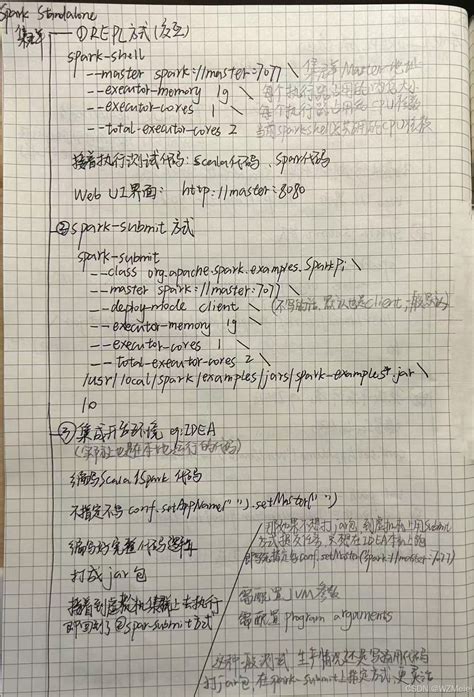 Spark Standalone
集群 ①REPL方式(交互)
spark-shell
--master spark://master:7077 \ 集群Master地址
--executor-memory 1g \ 每个执行器占用的内存大小
--executor-cores 1 \ 每个执行器占用的CPU核数
--total-executor-cores 2 当前sparkshell占用的CPU核数
接着执行测试代码: scala代码、Spark代码
Web UI界面: http://master:8080
②spark-submit 方式
spark-submit
--class org.apache.spark.examples.SparkPi \
--master spark://master:7077 \
--deploy-mode client \ (不写的话,默认也是client,
--executor-memory 1g \
--executor-cores 1 \
--total-executor-cores 2 \
/usr/local/spark/examples/jars/spark-examples*.jar \
10
③集成开发环境 eg:IDEA
(实际也是在本地运行的代码)
编写Scala的Spark 代码
不指定不写 conf.setAppName(" ").setMaster(" ")
编写好完整代码逻辑
打成jar包
接着到虚拟机集群上去执行
即回到了②spar-submit方式
那如果不想打jar包 到虚拟机上用submit
方式提交任务,只想在IDEA本地上跑
即写指定为conf.setMaster(spark://master:7077)
需配置 JVM 参数
需配置 program arguments
这种一般测试,生产情况还是写离用代码
打jar包,在spark-submit上指定方式,更灵活
CSDN @WZMeiei